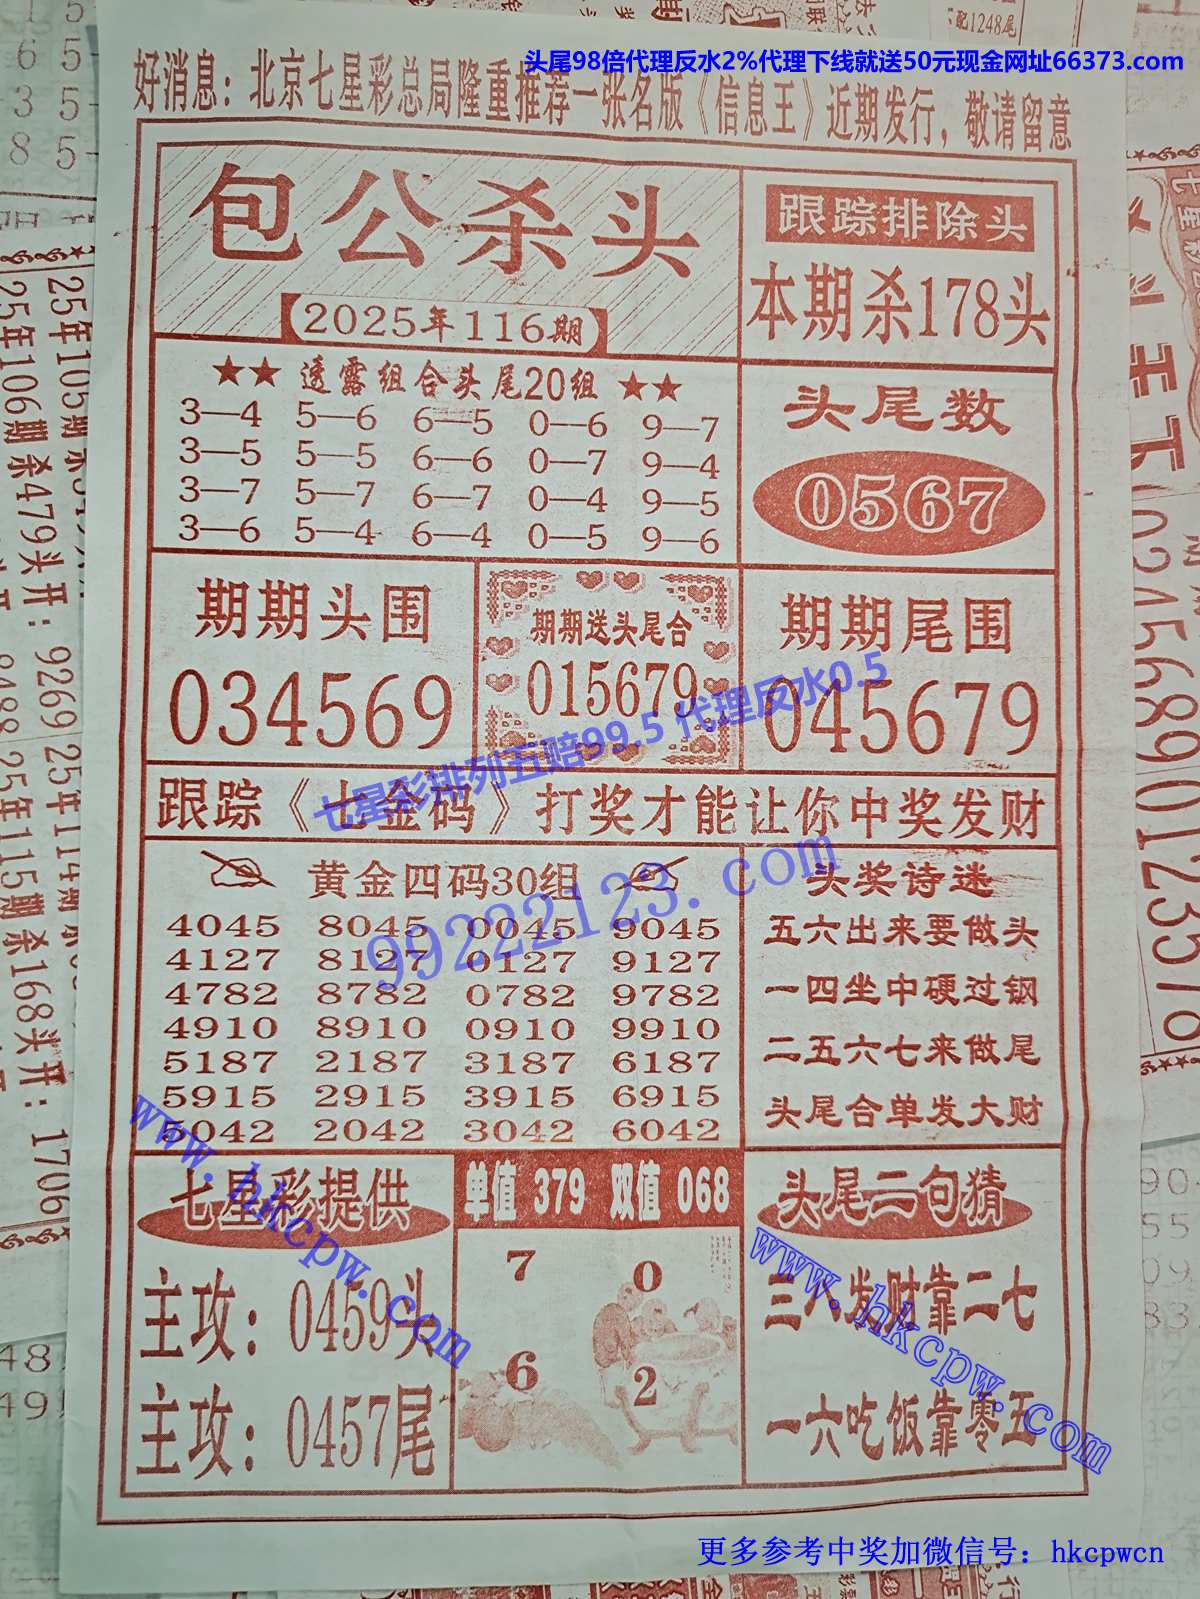 头尾98倍代理反水2%代理下线就送50元现金网址66373.com
好消息：北京七星彩总局隆重推荐一张名版《信息王》近期发行，敬请留意
包公杀头
2025年116期
跟踪排除头
本期杀178头
★★ 透露组合头尾20组 ★★
3—4 5—6 6—5 0—6 9—7
3—5 5—5 6—6 0—7 9—4
3—7 5—7 6—7 0—4 9—5
3—6 5—4 6—4 0—5 9—6
头尾数
0567
期期头围
034569
期期送头尾合
015679
期期尾围
045679
七星彩排列五赔99.5 代理反水0.5
跟踪《七金码》打奖才能让你中奖发财
黄金四码30组
4045 8045 0045 9045
4127 8127 0127 9127
4782 8782 0782 9782
4910 8910 0910 9910
5187 2187 3187 6187
5915 2915 3915 6915
5042 2042 3042 6042
99222123.com
头奖诗迷
五六出来要做头
一四坐中硬过钢
二五六七来做尾
头尾合单发大财
七星彩提供
主攻：0459头
主攻：0457尾
www.hkcpw.com
单值 379 双值 068
7 0
6 2
头尾二句猜
三八发财靠二七
一六吃饭靠零五
www.hkcpw.com
更多参考中奖加微信号：hkcpwcn
25年105期杀
25年106期杀479头开：9269
25年114期
25年115期杀168头开：1706
配1248尾